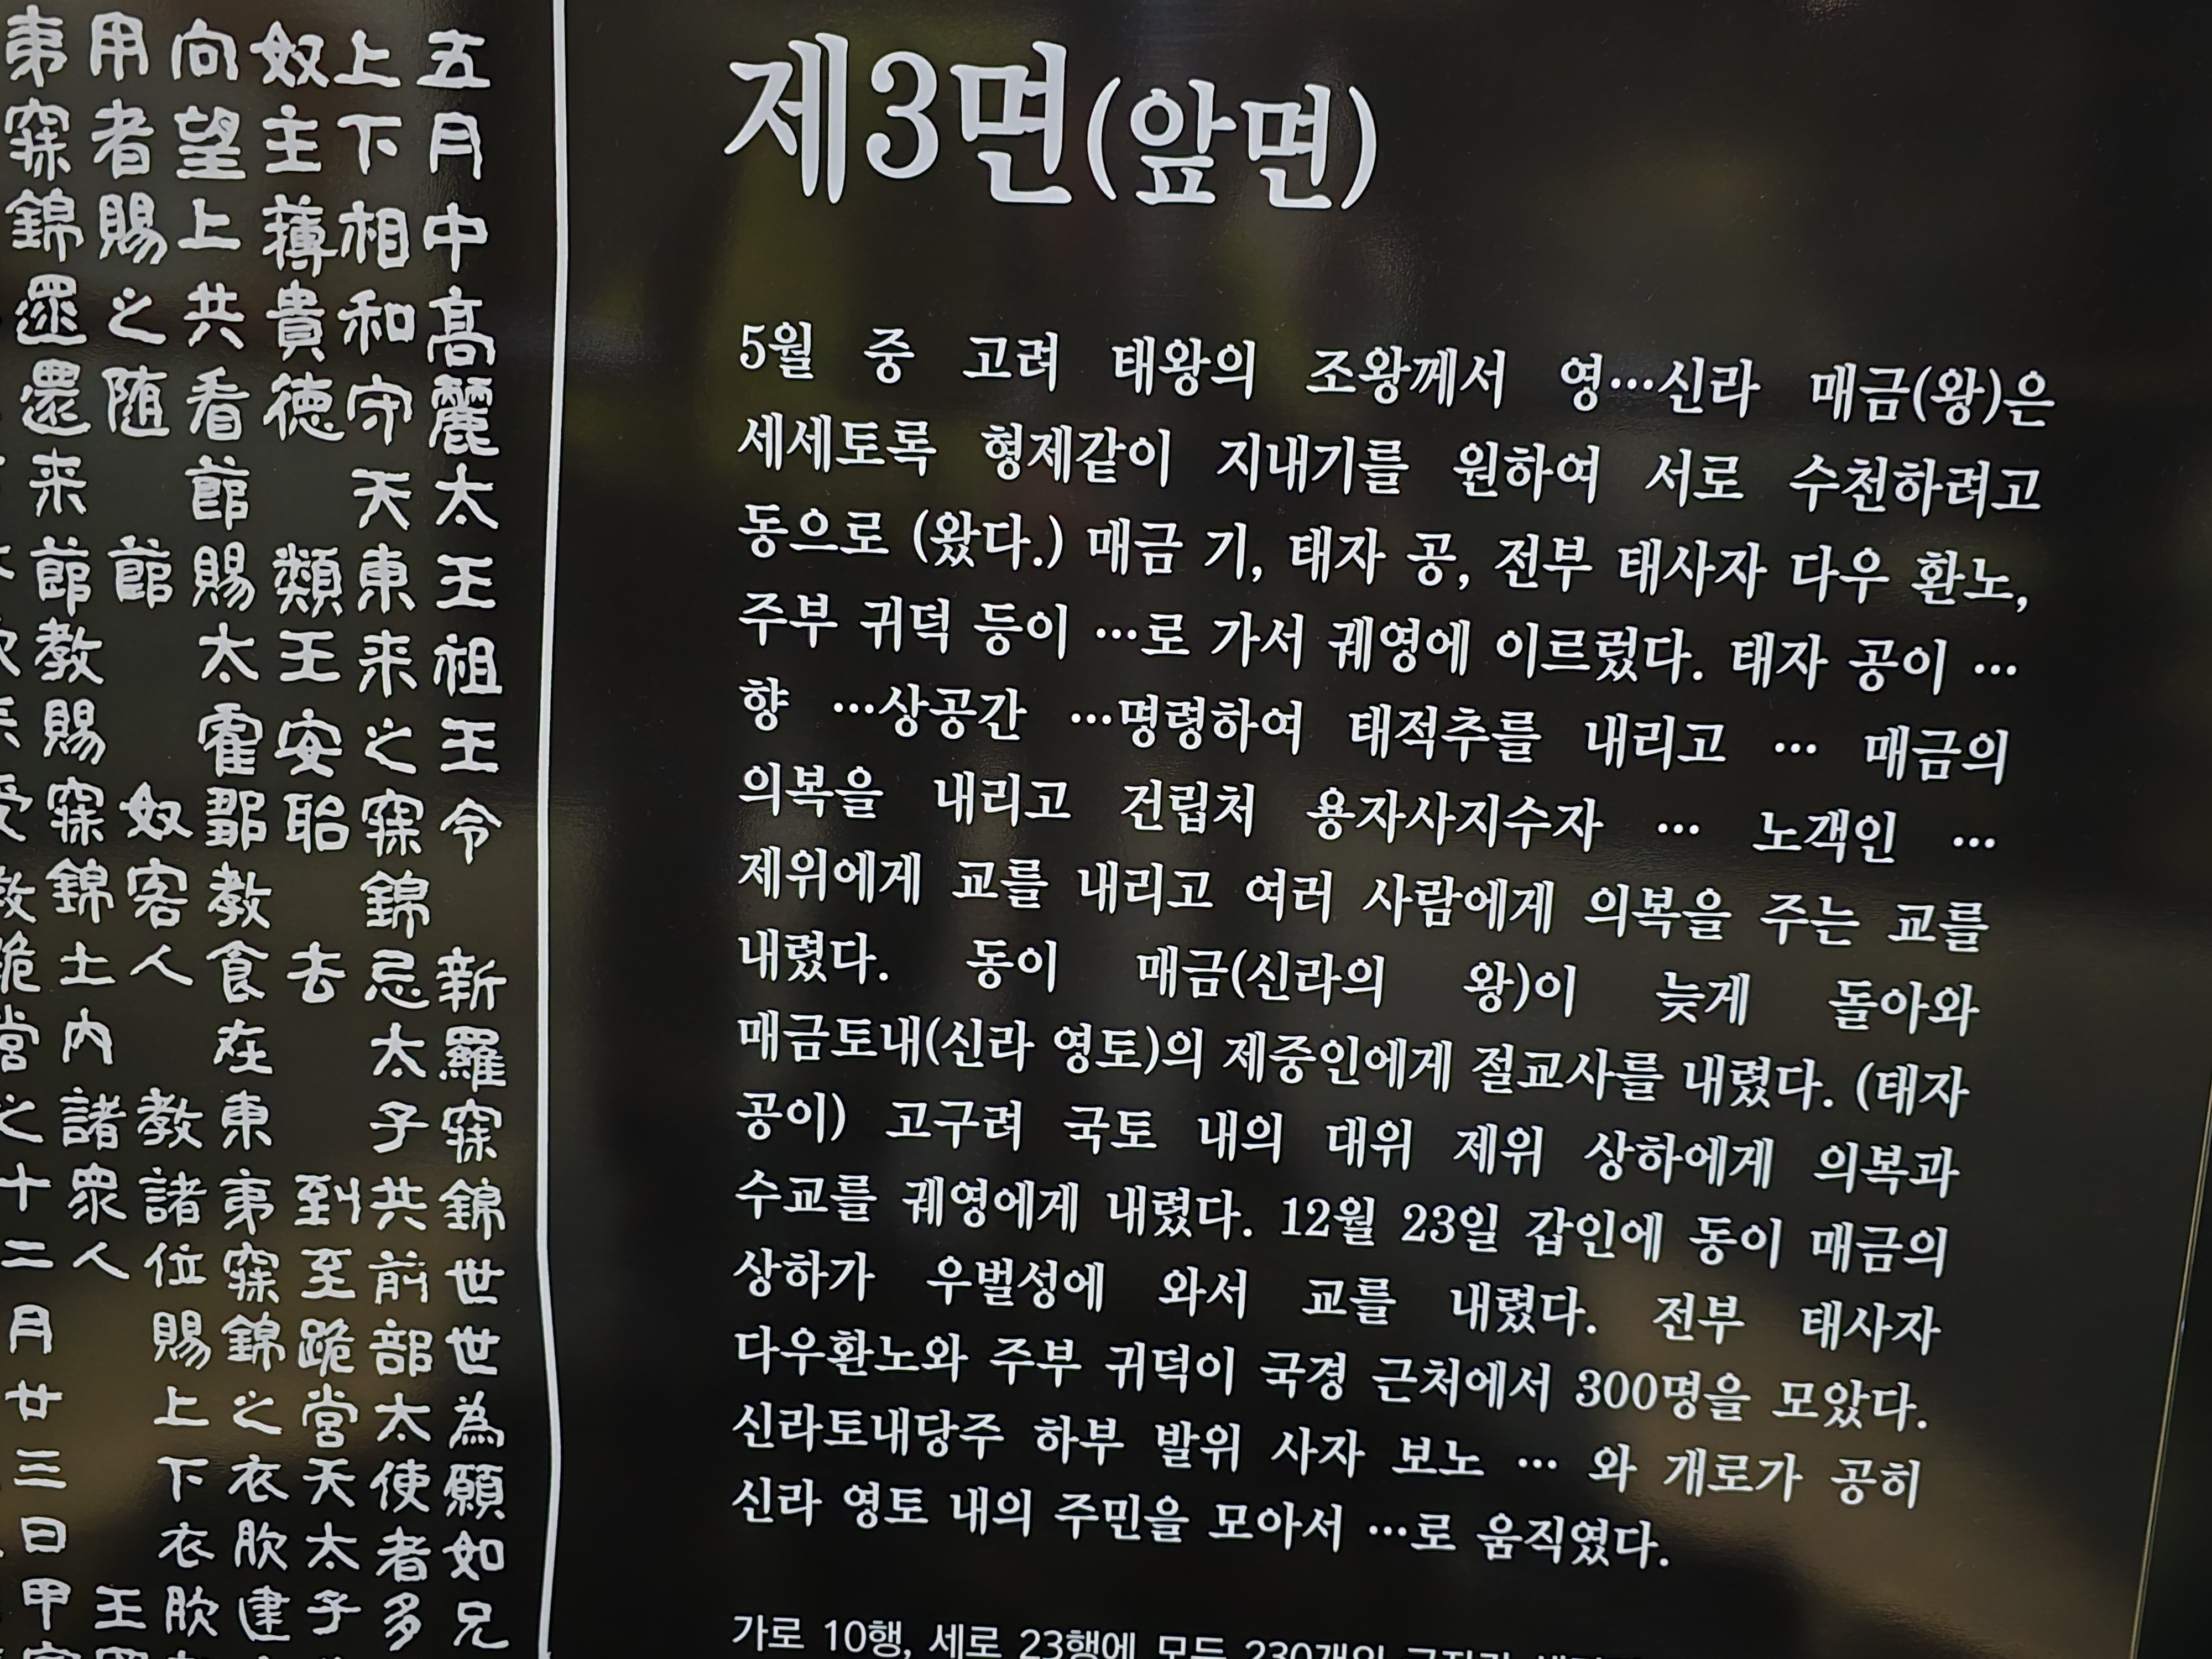 제3면(앞면)
5월 중 고려 태왕의 조왕께서 영…신라 매금(왕)은
세세토록 형제같이 지내기를 원하여 서로 수천하려고
동으로 (왔다.) 매금 기, 태자 공, 전부 태사자 다우 환노,
주부 귀덕 등이 …로 가서 궤영에 이르렀다. 태자 공이 …
향 …상공간 …명령하여 태적추를 내리고 … 매금의
의복을 내리고 건립처 용자사지수자 … 노객인 …
제위에게 교를 내리고 여러 사람에게 의복을 주는 교를
내렸다. 동이 매금(신라의 왕)이 늦게 돌아와
매금토내(신라 영토)의 제중인에게 절교사를 내렸다. (태자
공이) 고구려 국토 내의 대위 제위 상하에게 의복과
수교를 궤영에게 내렸다. 12월 23일 갑인에 동이 매금의
상하가 우벌성에 와서 교를 내렸다. 전부 태사자
다우환노와 주부 귀덕이 국경 근처에서 300명을 모았다.
신라토내당주 하부 발위 사자 보노 … 와 개로가 공히
신라 영토 내의 주민을 모아서 …로 움직였다.
가로 10행, 세로 23행에 모두 230개의
五月中高麗太王祖王令 新羅寐錦世世為願如兄
上下相和守天東来之寐錦忌太子共前部太使者多
奴主薄貴德 類王安聆 去 到至跪営天太子
向望上共看節賜太霍鄒教食在東夷寐錦之衣服建
用者賜之随 節 奴客人 教諸位賜上下衣服
夷寐錦遝還来節教賜寐錦土内諸衆人 王
十二月廿三日甲